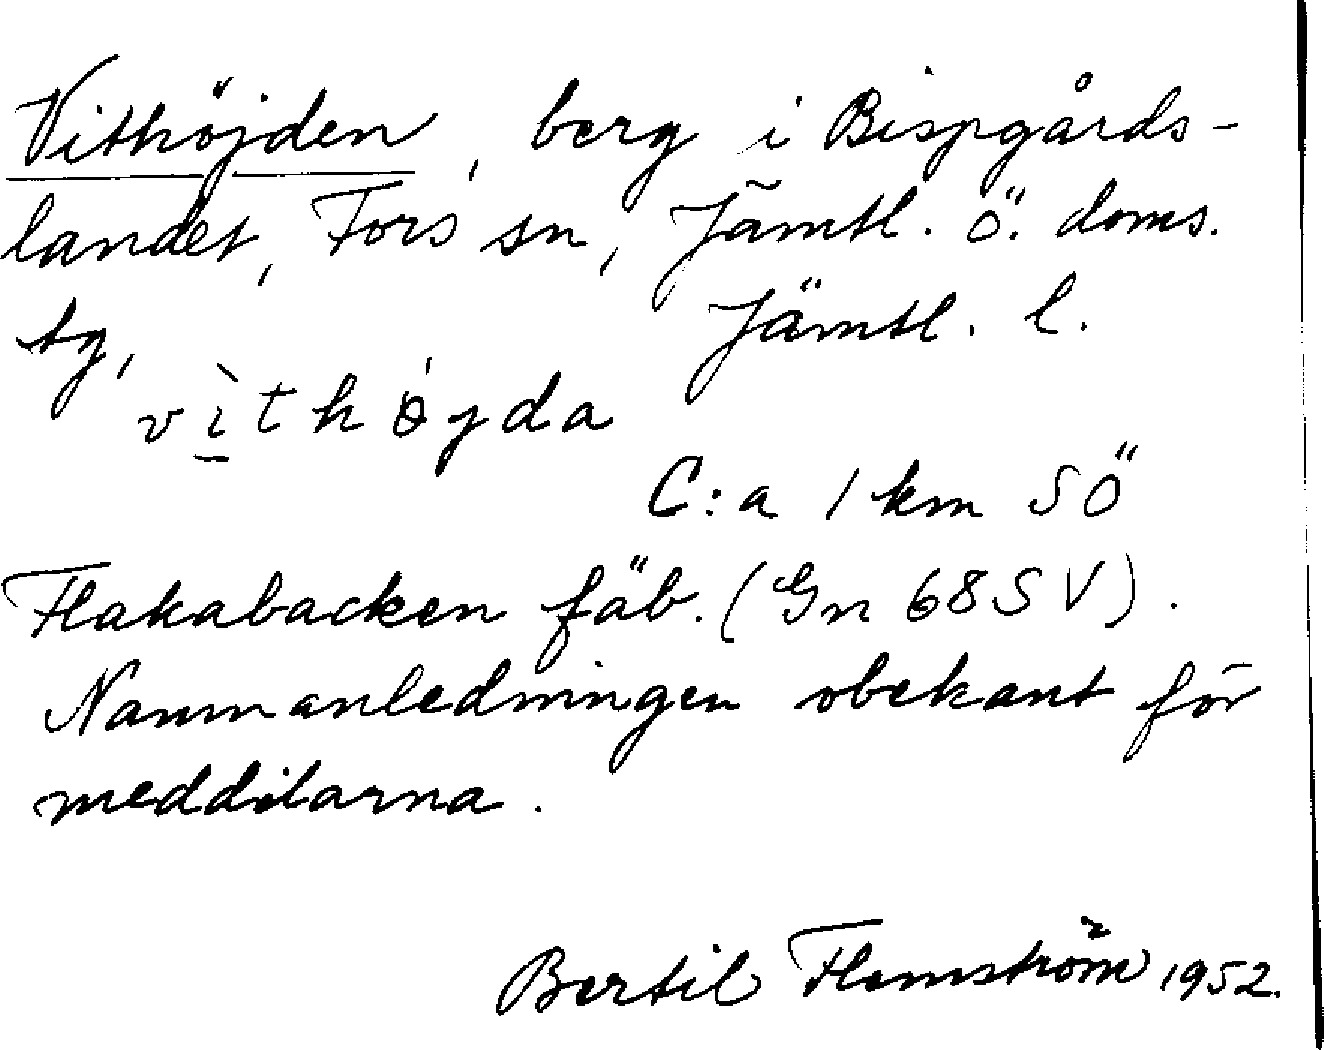 Vithöjden, berg i Bispgårds-
landet, Fors sn, Jämtl. ö. doms.
tg, Jämtl. l.
vìthöjda
C:a 1 km SÖ
Flakabacken fäb. (Gn 68 SV).
Namnanledningen obekant för
meddelarna.
Bertil Flemström 1952.